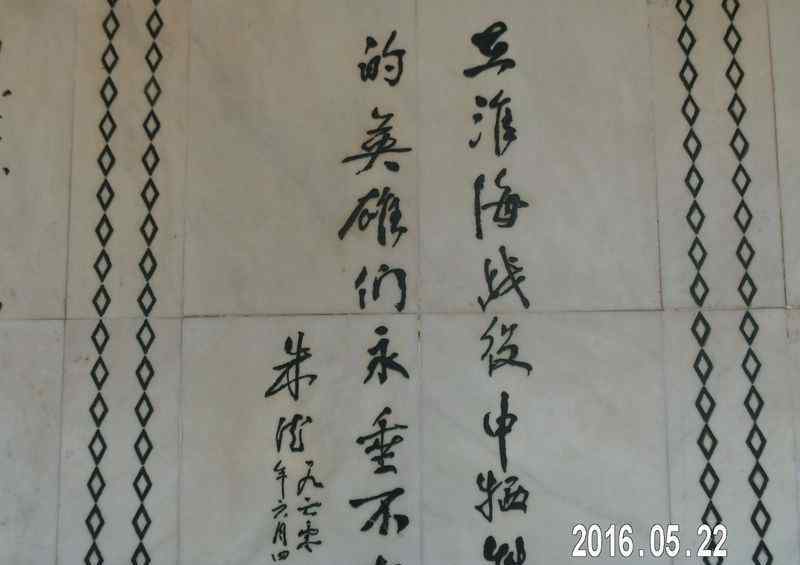 在淮海战役中牺牲
的英雄们永垂不
朱德
一九六零
年六月四
2016.05.22